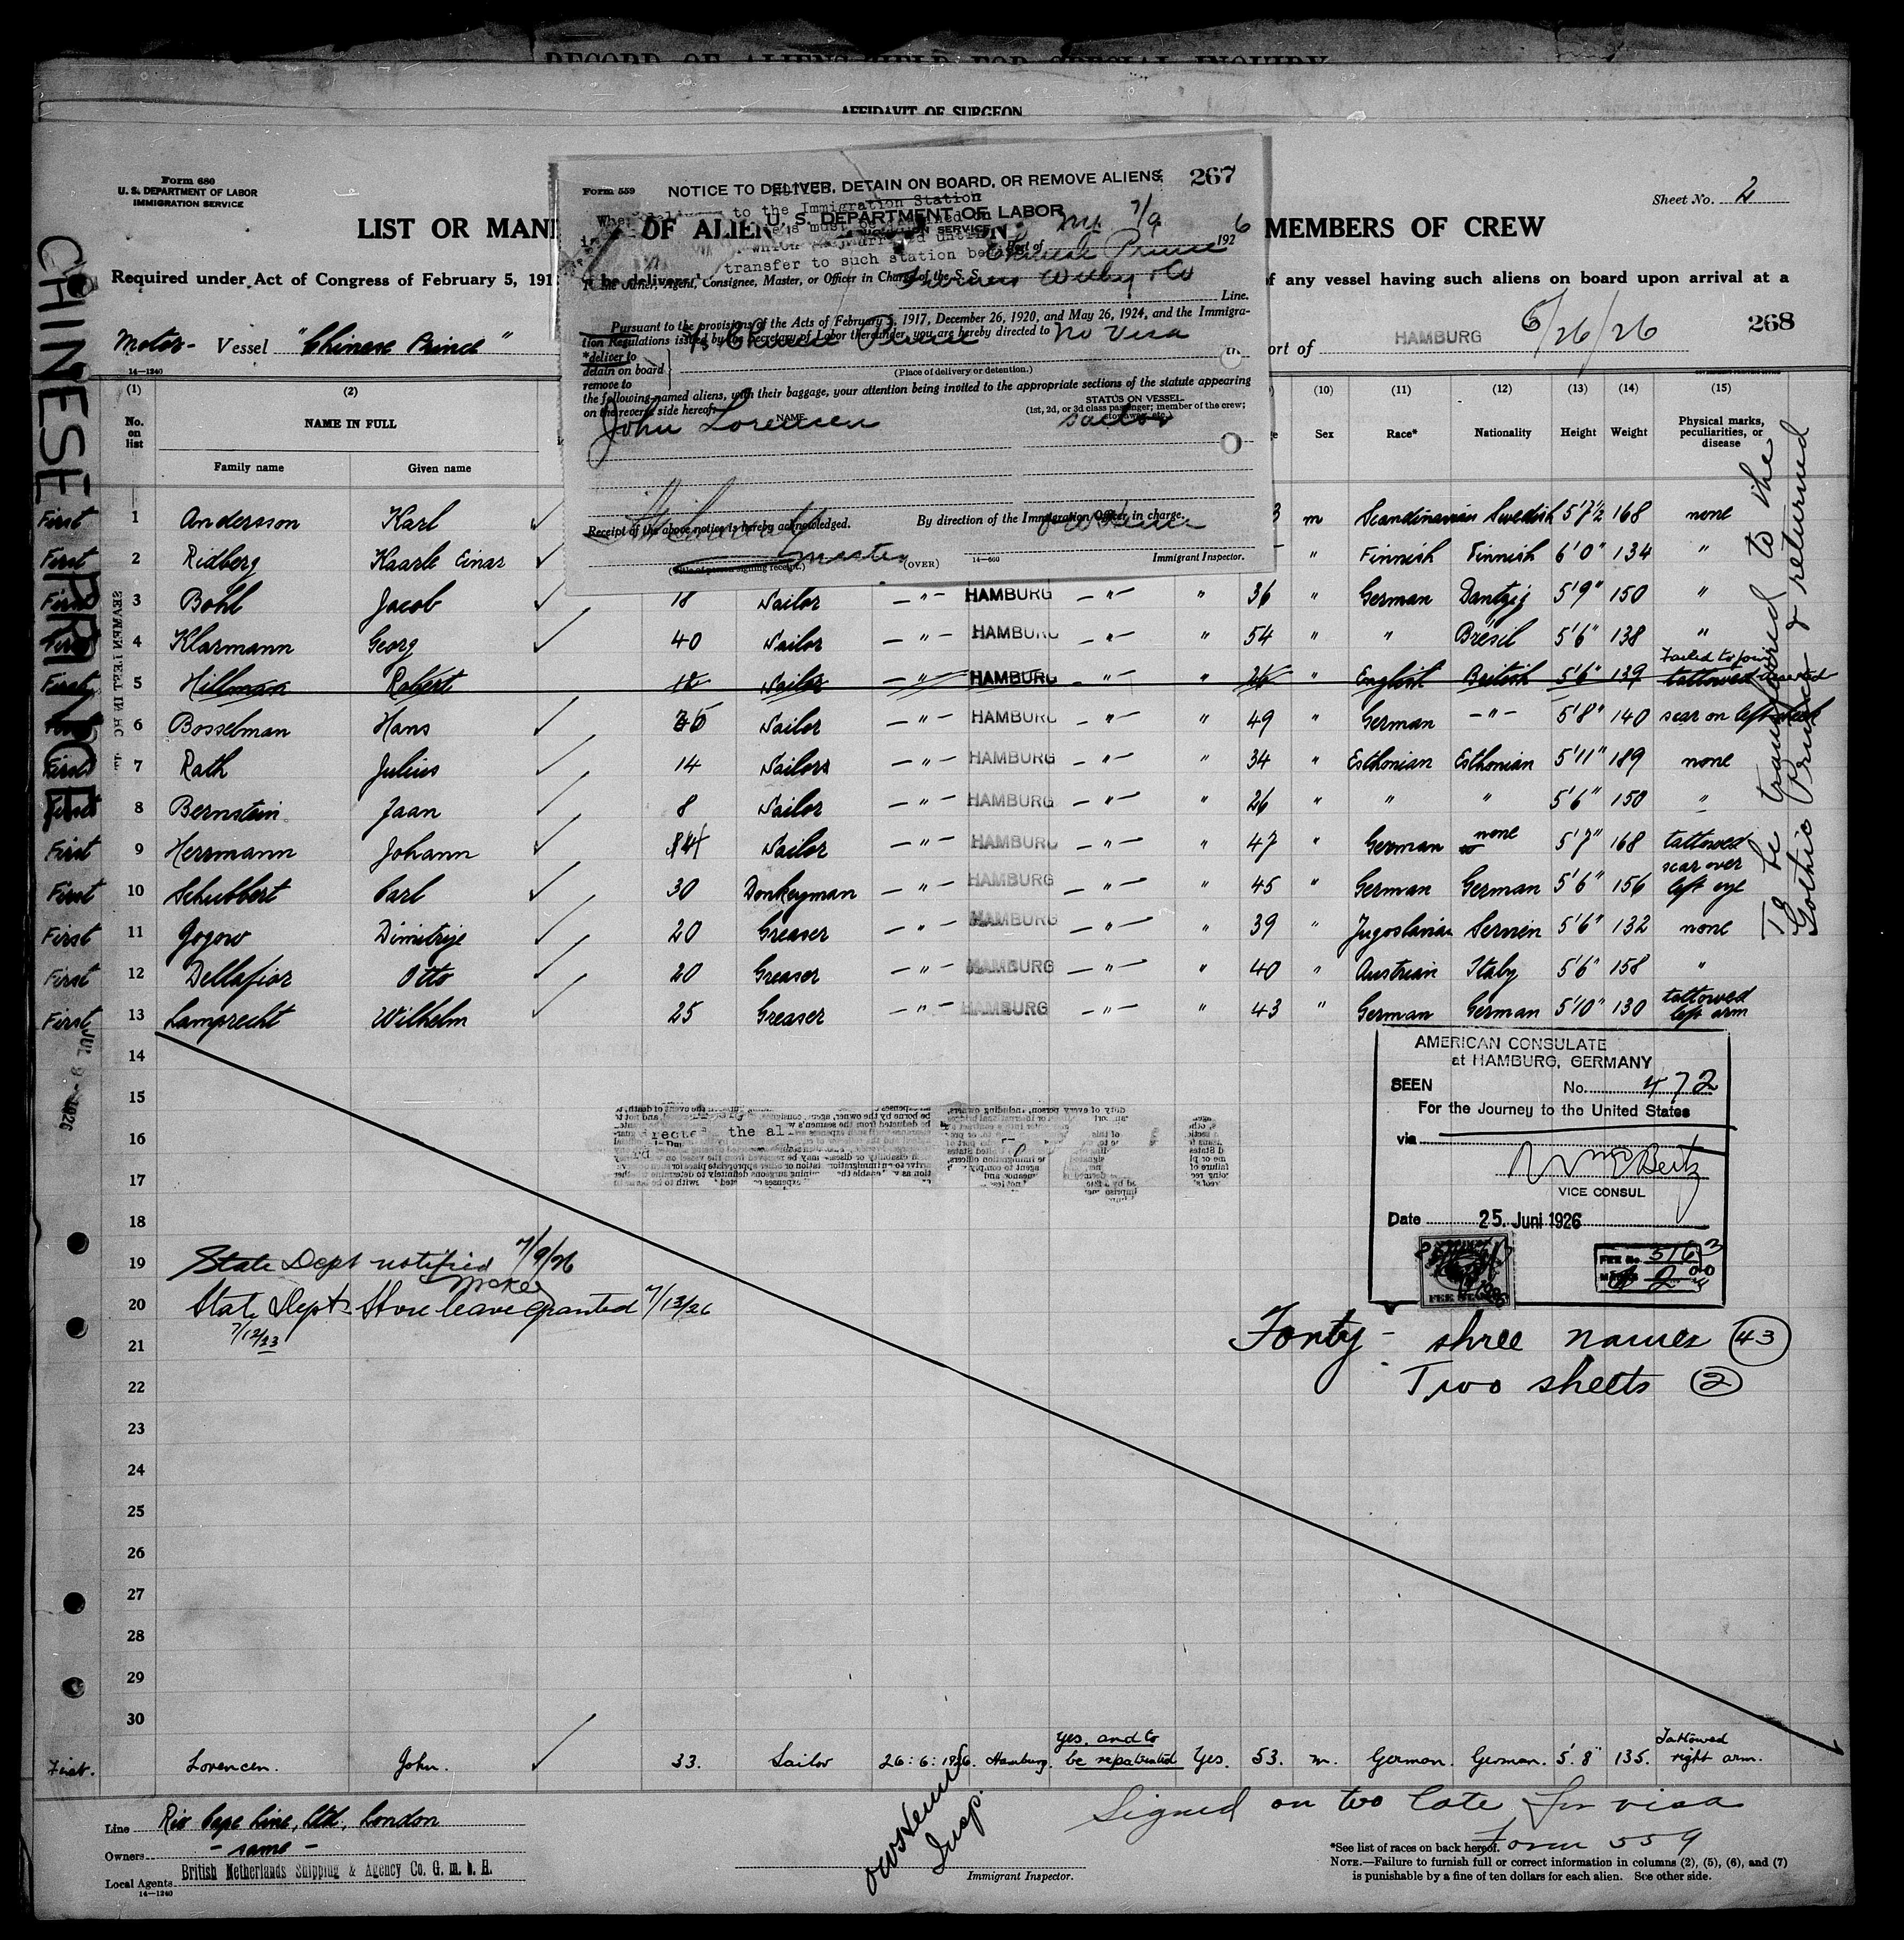 RECORD OF ALIENS HELD FOR SPECIAL INQUIRY
AFFIDAVIT OF SURGEON
Form 680
U. S. DEPARTMENT OF LABOR
IMMIGRATION SERVICE
Sheet No. 2
LIST OR MANI OF ALIEN MEMBERS OF CREW
Required under Act of Congress of February 5, 191 be delivered of any vessel having such aliens on board upon arrival at a
Motor- Vessel "Chinese Prince" port of HAMBURG 6/26/26 268
14—1240
CHINESE PRINCE
Form 559 NOTICE TO DELIVER, DETAIN ON BOARD, OR REMOVE ALIENS 267
to the Immigration Station
U. S. DEPARTMENT OF LABOR
transfer to such station be
Port of 7/9 1926
To the Owner, Agent, Consignee, Master, or Officer in Charge of the S. S. Chinese Prince
Furness Withy & Co Line.
Pursuant to the provisions of the Acts of February 5, 1917, December 26, 1920, and May 26, 1924, and the Immigra-
tion Regulations issued by the Secretary of Labor thereunder, you are hereby directed to No Visa
*deliver to
detain on board
remove to
Chinese Prince
(Place of delivery or detention.)
the following-named aliens, with their baggage, your attention being invited to the appropriate sections of the statute appearing
on the reverse side hereof:
NAME STATUS ON VESSEL
(1st, 2d, or 3d class passenger; member of the crew; stowaway, etc.)
John Lorencen Sailor
Receipt of the above notice is hereby acknowledged. By direction of the Immigration Officer in charge.
Master
(Title of person signing receipt.) (OVER) 14—600 Immigrant Inspector.
(1) (2) (10) (11) (12) (13) (14) (15)
No. on list NAME IN FULL Sex Race* Nationality Height Weight Physical marks, peculiarities, or disease
Family name Given name
First 1 Andersson Karl m Scandinavian Swedish 5'7½ 168 none
First 2 Ridberg Kaarle Einar " Finnish Finnish 6'0" 134 "
First 3 Bohl Jacob 18 Sailor — " — HAMBURG — " — " 36 " German Dantzig 5'9" 150 "
First 4 Klarmann Georg 40 Sailor — " — HAMBURG — " — " 54 " " Bresil 5'6" 138 "
First 5 Hillman Robert 12 Sailor — " — HAMBURG — " — " 26 " English British 5'6" 139 tattowed Failed to join
First 6 Bosselman Hans 35 Sailor — " — HAMBURG — " — " 49 " German — " — 5'8" 140 scar on left cheek
First 7 Rath Julius 14 Sailors — " — HAMBURG — " — " 34 " Esthonian Esthonian 5'11" 189 none
First 8 Bernstein Jaan 8 Sailor — " — HAMBURG — " — " 26 " " " 5'6" 150 "
First 9 Herrmann Johann 14 Sailor — " — HAMBURG — " — " 47 " German none 5'7" 168 tattowed
First 10 Schubbert Carl 30 Donkeyman — " — HAMBURG — " — " 45 " German German 5'6" 156 scar over left eye
First 11 Gogow Dimitrije 20 Greaser — " — HAMBURG — " — " 39 " Jugoslavian Servien 5'6" 132 none
First 12 Dellafior Otto 20 Greaser — " — HAMBURG — " — " 40 " Austrian Italy 5'6" 158 "
First 13 Lamprecht Wilhelm 25 Greaser — " — HAMBURG — " — " 43 " German German 5'10" 130 tattowed left arm
To be transferred to the
Gothic Prince & returned
JUL 9 - 1926
14
15
16
17
18
19
20
21
22
23
24
25
26
27
28
29
30
AMERICAN CONSULATE
at HAMBURG, GERMANY
SEEN No. 472
For the Journey to the United States
via
VICE CONSUL
Date 25. Juni 1926
FEE No. 5163
FEE STAMP
State Dept notified 7/9/26
State Dept Shore leave granted 7/13/26
Forty - three names (43)
Two sheets (2)
First. Lorencen. John. 33. Sailor 26:6:1926. Hamburg. Yes. and to be repatriated Yes. 53. m. German. German. 5'.8" 135. Tattowed right arm.
Signed on too late for visa
Form 559
Line Rio Cape Line, Ltd, London
Owners - same -
Local Agents British Netherlands Shipping & Agency Co. G. m. b. H.
14—1240
Insp.
Immigrant Inspector.
*See list of races on back hereof.
NOTE.—Failure to furnish full or correct information in columns (2), (5), (6), and (7)
is punishable by a fine of ten dollars for each alien. See other side.